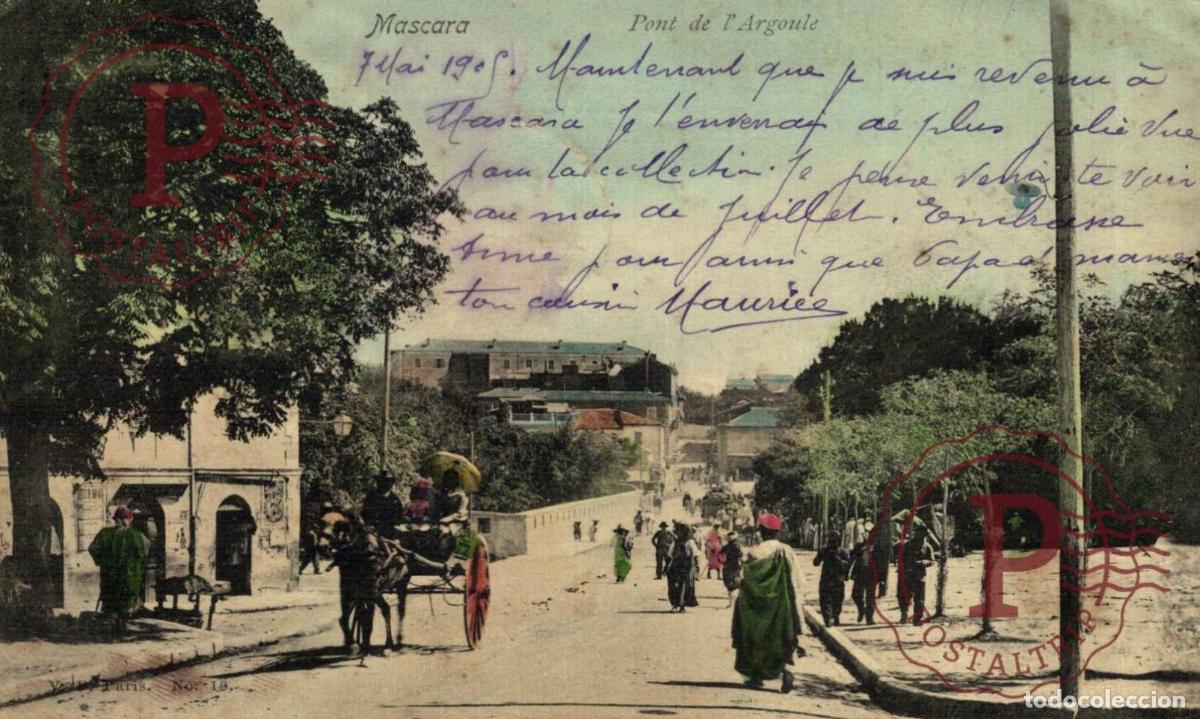 Mascara Pont de l'Argoule
7 Mai 1905. Maintenant que je suis revenu à
Mascara je t'enverrai de plus jolie vue
pour ta collection. Je pense venir te voir
au mois de Juillet. Embrasse
pour ainsi que Papa et mama
ton cousin Maurice
V. Paris. No. 10.
P
POSTALTRIP
P
POSTALTRIP
todocoleccion